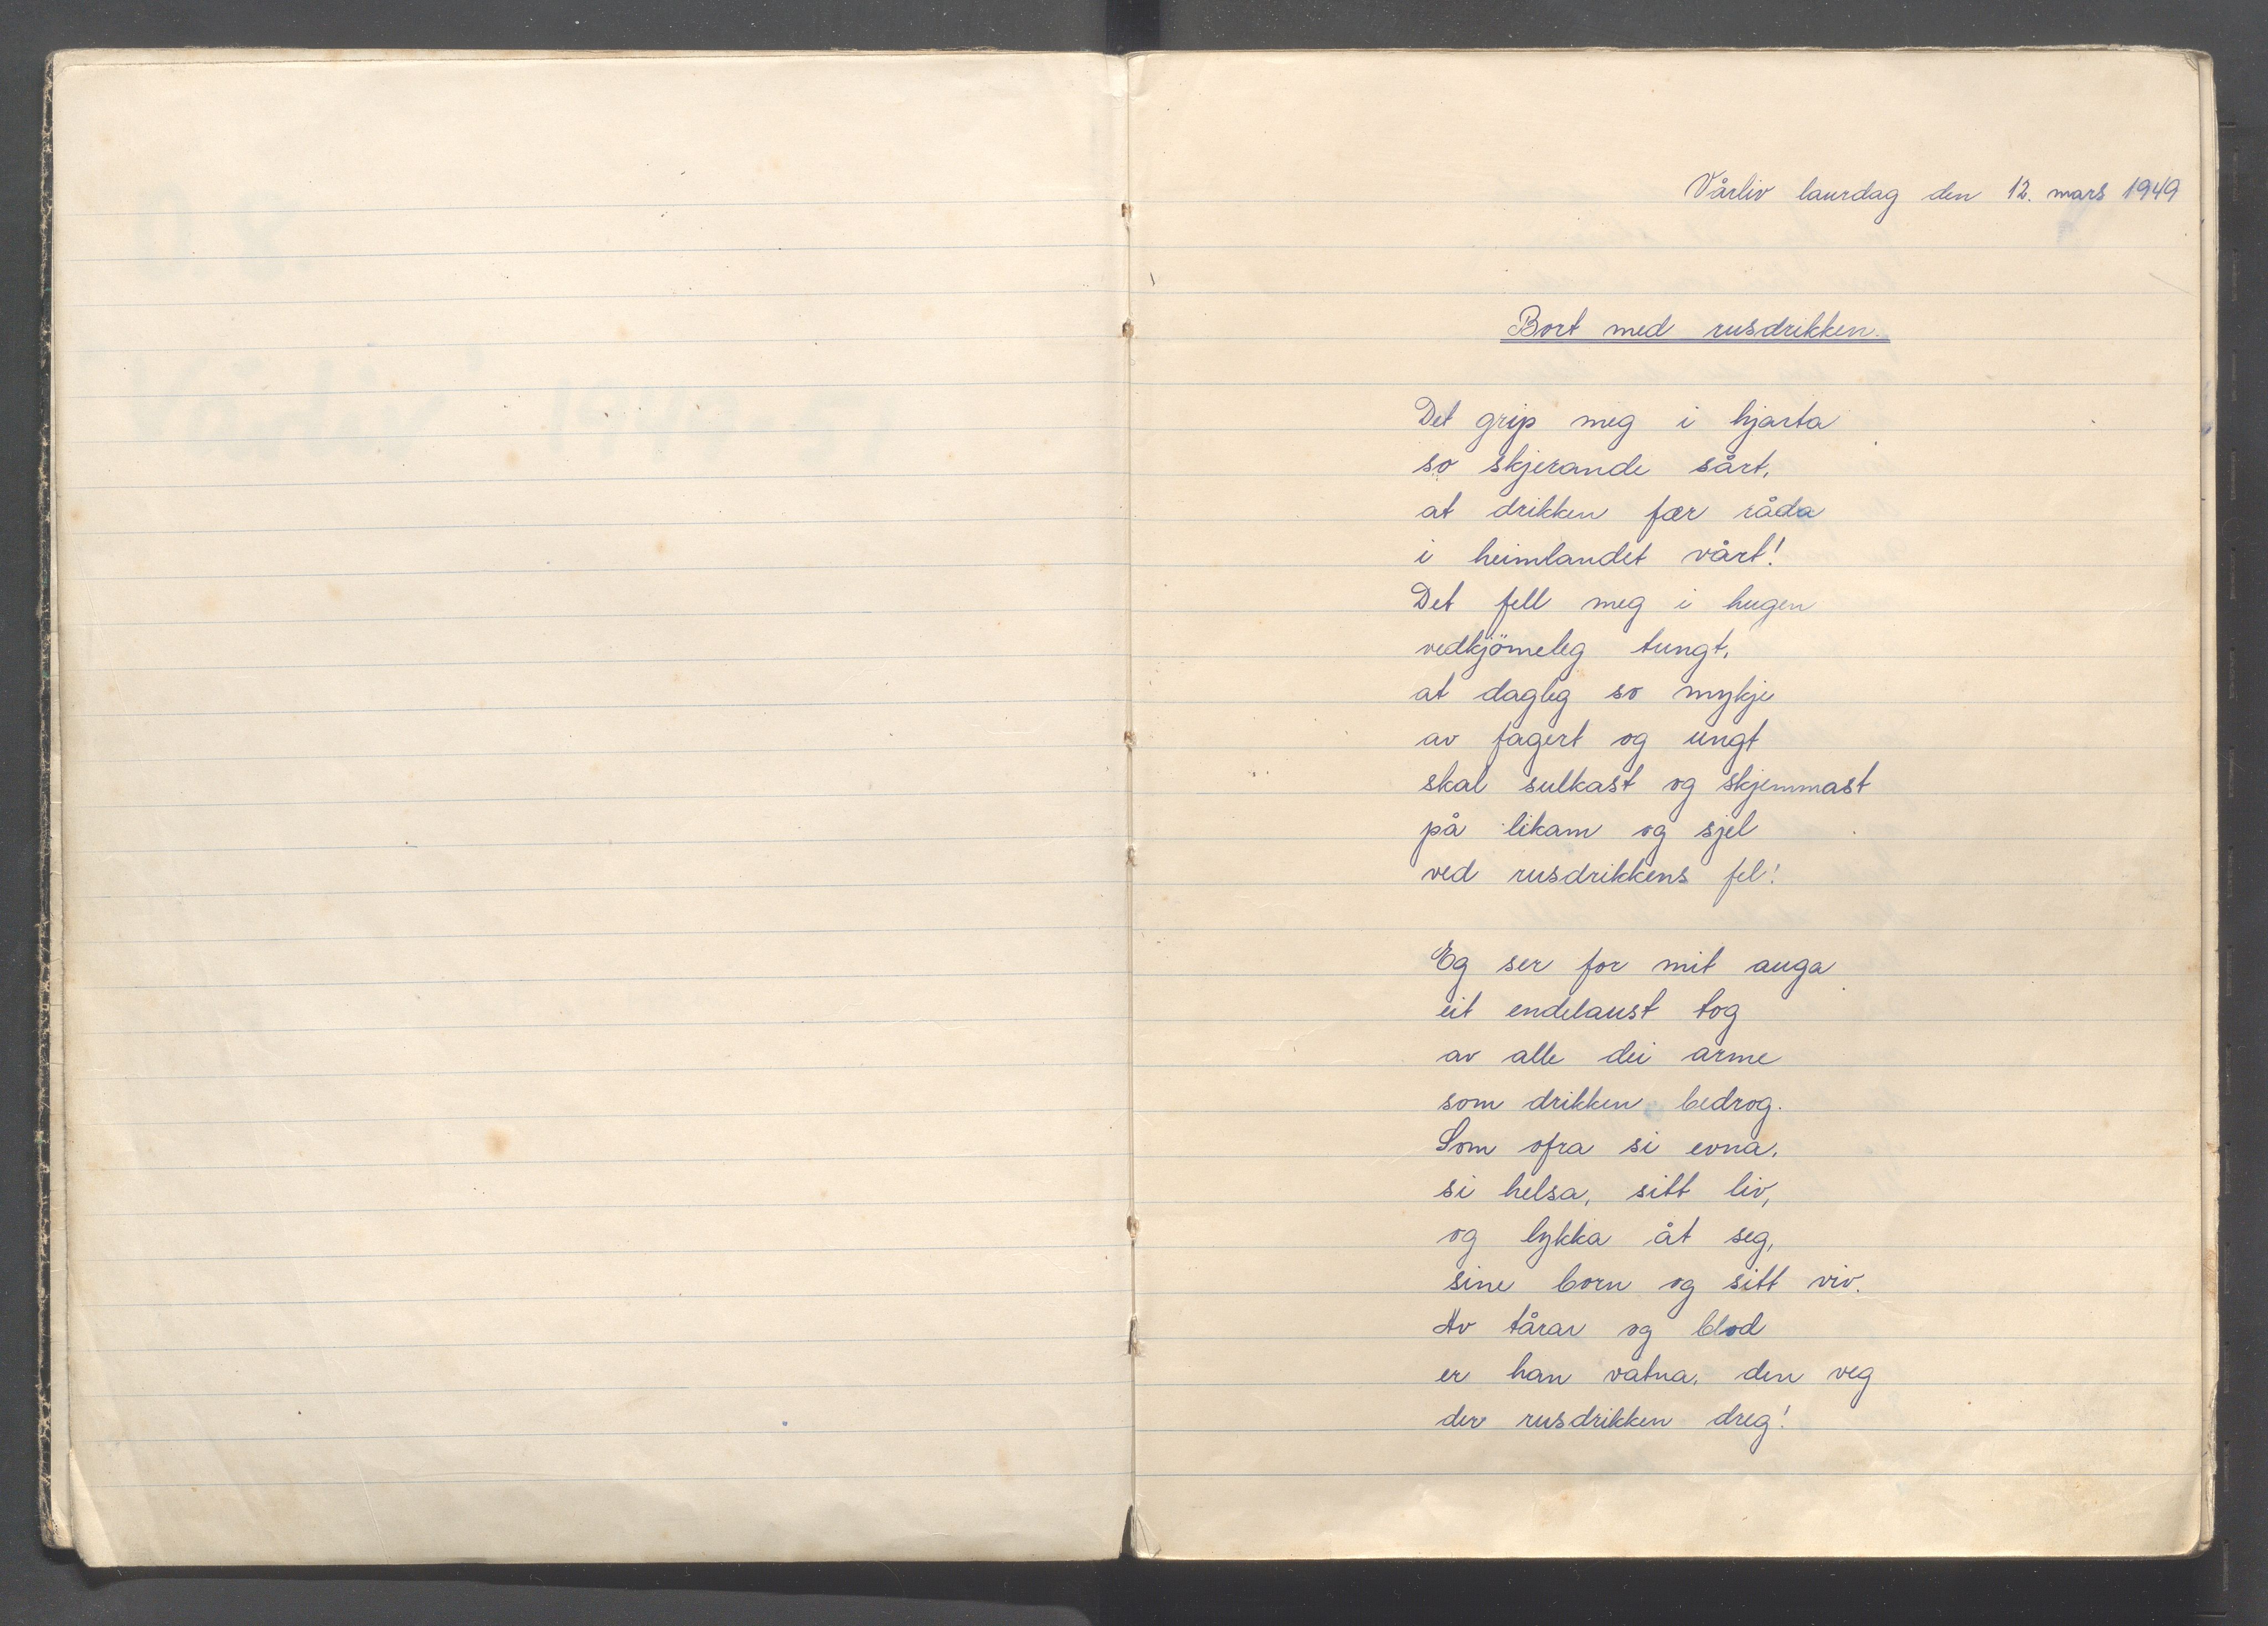 Vårliv laurdag den 12. mars 1949
Bort med rusdrikken.
Det grip meg i hjarta
so skjerande sårt,
at drikken fær råda
i heimlandet vårt!
Det fell meg i hugen
vedkjömeleg tungt,
at dagleg so mykje
av fagert og ungt
skal sulkast og skjemmast
på likam og sjel
ved rusdrikkens fel!
Eg ser for mit auga
eit endelaust tog
av alle dei arme
som drikken bedrog.
Som ofra si evna,
si helsa, sitt liv,
og lykka åt seg,
sine born og sitt viv.
Av tårar og blod
er han vatna, den veg
der rusdrikken dreg!